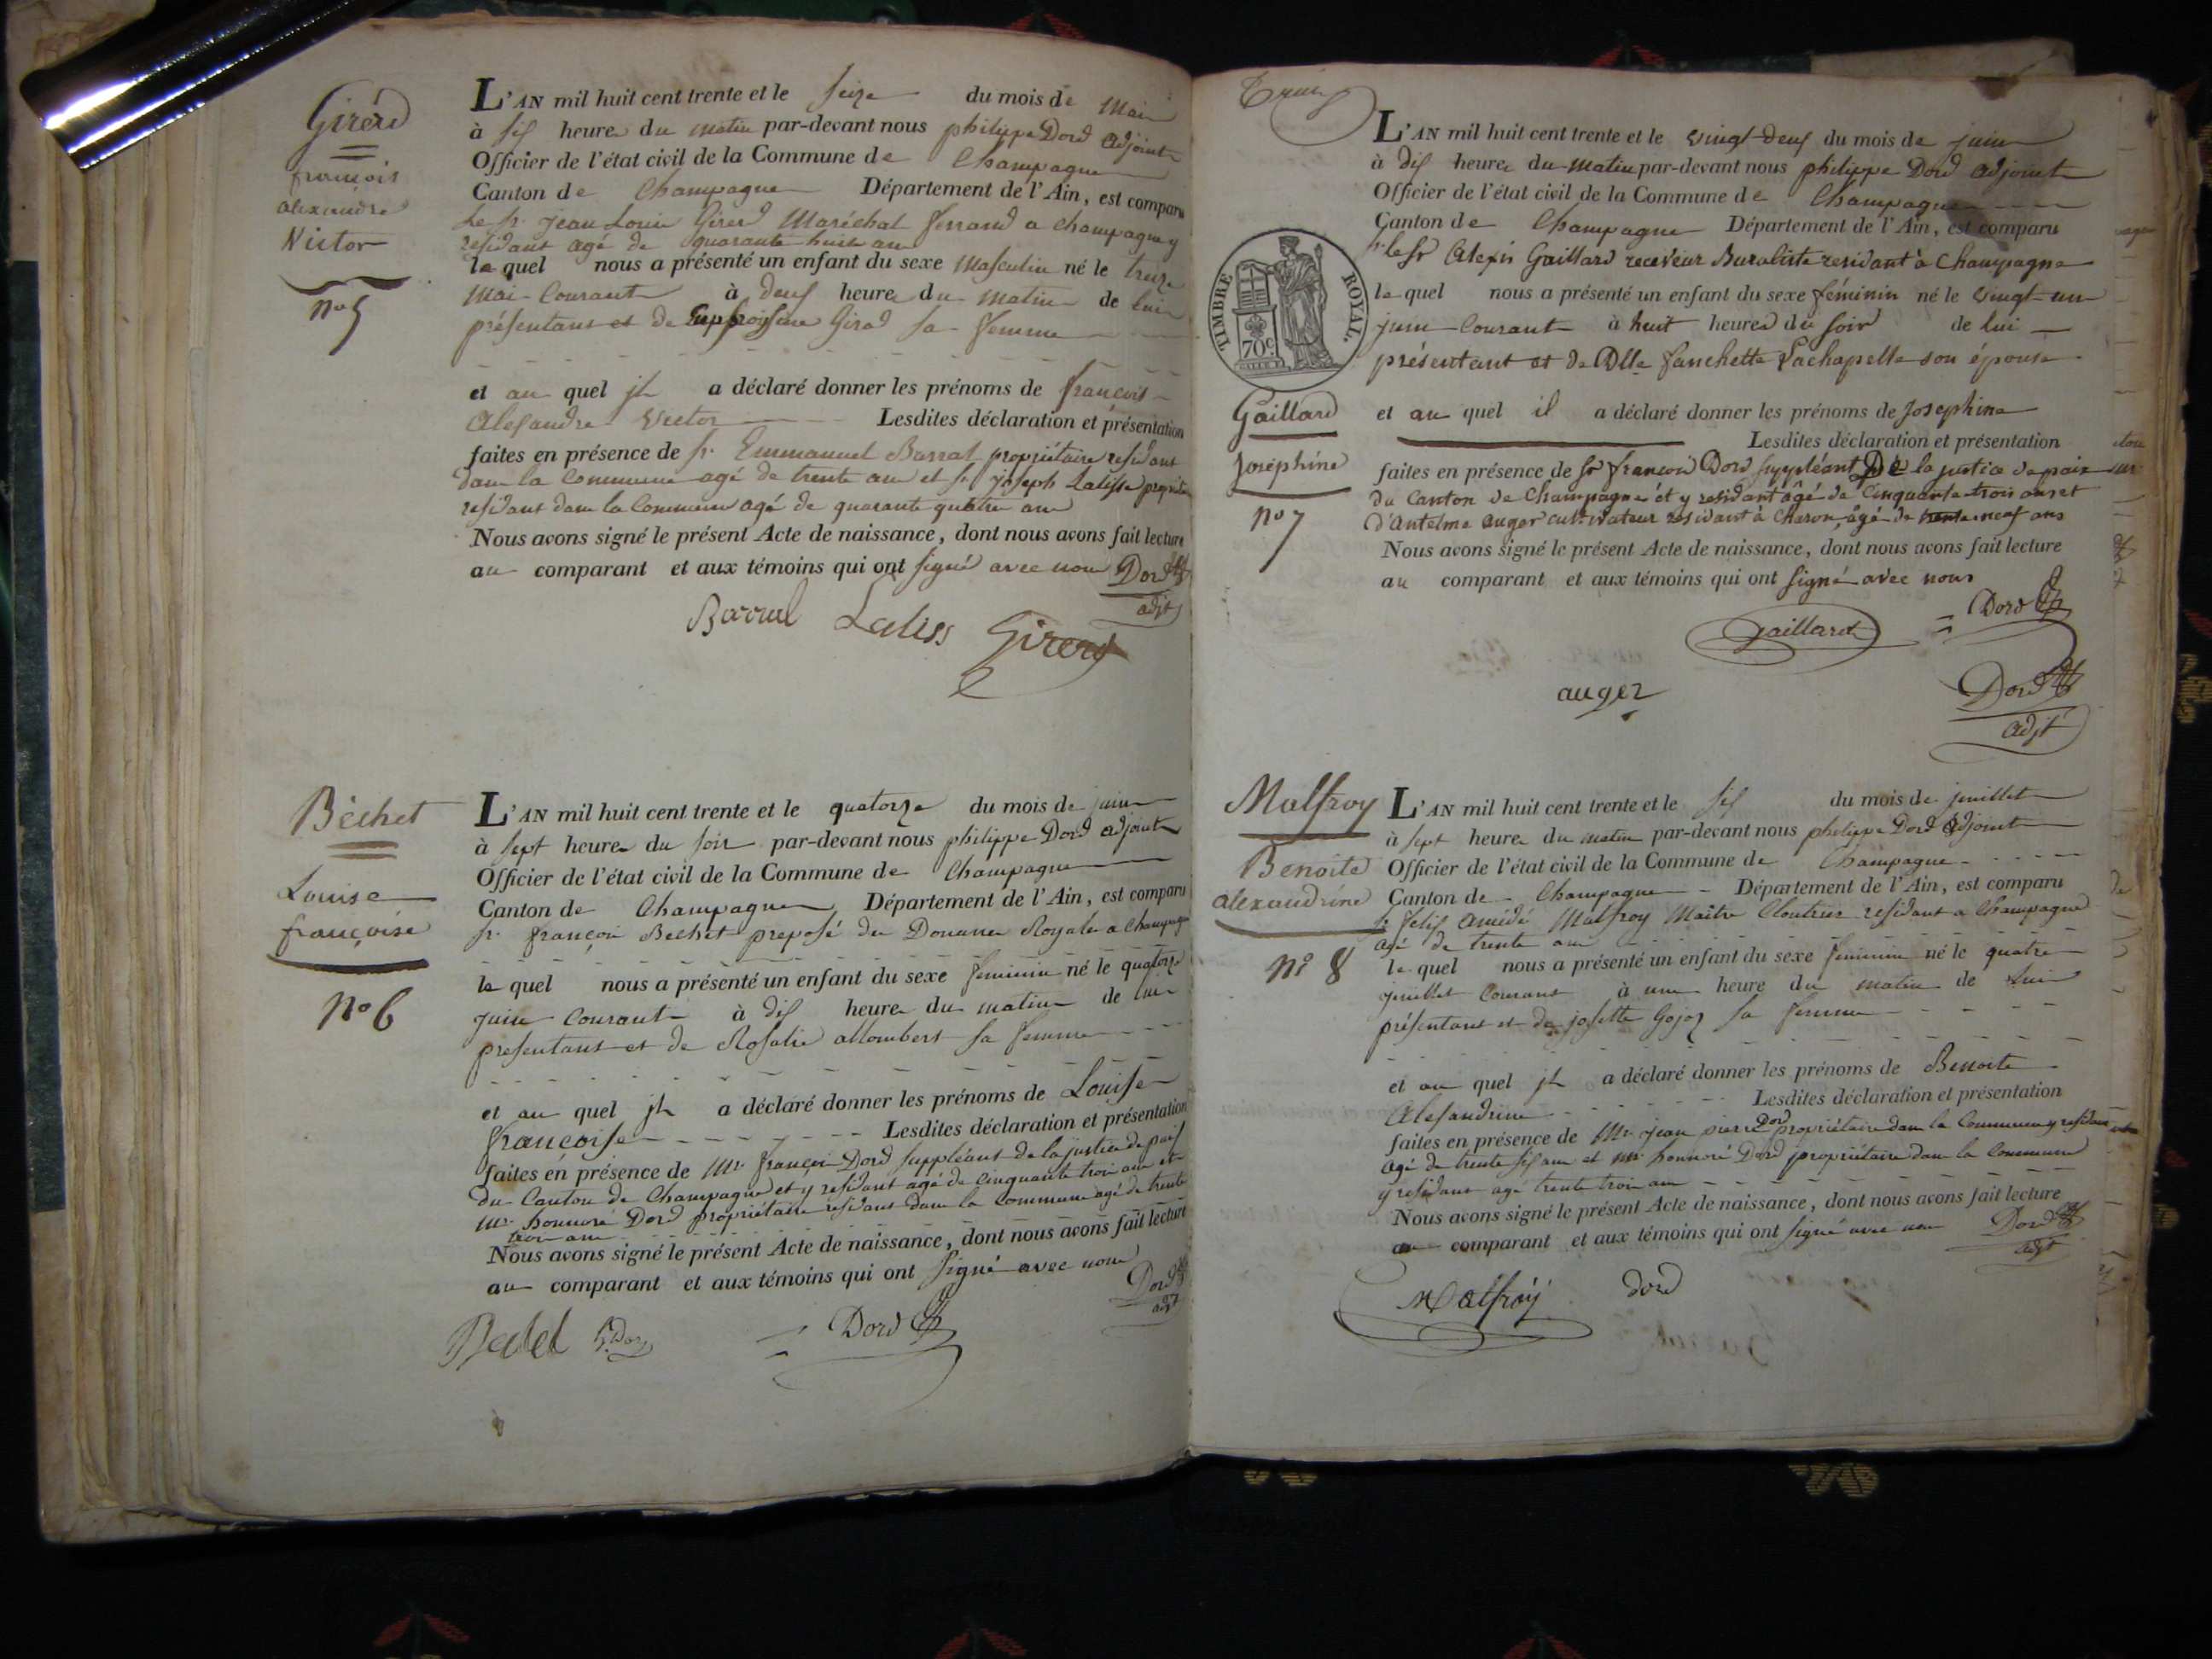 Girerd
françois
alexandre
Victor
n° 5
L'AN mil huit cent trente et le seize du mois de Mai
à six heures du matin par-devant nous philippe Dord adjoint
Officier de l'état civil de la Commune de Champagne
Canton de Champagne Département de l'Ain, est comparu
Le sr. jean Louis Girerd Maréchal ferrand a champagne y
residant agé de quarante huit ans
le quel nous a présenté un enfant du sexe Masculin né le treize
Mai Courant à deux heures du matin de lui
présentant et de Girod sa femme
et au quel jl a déclaré donner les prénoms de françois
Alexandre Victor Lesdites déclaration et présentation
faites en présence de sr. Emmanuel Barral propriétaire residant
dans la Commune agé de trente ans et sr. joseph
residant dans la Commune agé de quarante quatre ans
Nous avons signé le présent Acte de naissance, dont nous avons fait lecture
au comparant et aux témoins qui ont signé avec nous Dord
adjt
Barral Girerd
Béchet
Louise
françoise
n° 6
L'AN mil huit cent trente et le quatorze du mois de juin
à sept heures du soir par-devant nous philippe Dord adjoint
Officier de l'état civil de la Commune de Champagne
Canton de Champagne Département de l'Ain, est comparu
sr. françois Bechet preposé des Douanes Royales a Champagne
le quel nous a présenté un enfant du sexe feminin né le quatorze
juin Courant à dix heures du matin de lui
presentant et de Rosalie allombert sa femme
et au quel jl a déclaré donner les prénoms de Louise
françoise Lesdites déclaration et présentation
faites en présence de Mr. françois Dord suppléant de la justice de paix
du Canton de Champagne et y residant agé de cinquante trois ans et
Mr. honnoré Dord propriétaire residant dans la Commune agé de trente
trois ans
Nous avons signé le présent Acte de naissance, dont nous avons fait lecture
au comparant et aux témoins qui ont signé avec nous
Dord
adjt
Dord
L'AN mil huit cent trente et le vingt-deux du mois de juin
à dix heures du matin par-devant nous philippe Dord adjoint
Officier de l'état civil de la Commune de Champagne
Canton de Champagne Département de l'Ain, est comparu
le sr Alexis Gaillard receveur Buraliste residant à Champagne
TIMBRE ROYAL.
70c
le quel nous a présenté un enfant du sexe féminin né le vingt-un
juin Courant à huit heures du soir de lui
présentant et de Dlle fanchette Lachapelle son épouse
Gaillard
Joséphine
n° 7
et au quel il a déclaré donner les prénoms de Josephine
Lesdites déclaration et présentation
faites en présence de sr françois Dord suppléant De la justice de paix
du Canton de Champagne et y residant âgé de cinquante trois ans et
d'Antelme auger cultivateur residant à Charon, âgé de trente neuf ans
Nous avons signé le présent Acte de naissance, dont nous avons fait lecture
au comparant et aux témoins qui ont signé avec nous
Dord
Gaillard
auger
Dord
adjt
Malfroy
Benoite
alexandrine
n° 8
L'AN mil huit cent trente et le six du mois de juillet
à sept heures du matin par-devant nous philippe Dord adjoint
Officier de l'état civil de la Commune de Champagne
Canton de Champagne Département de l'Ain, est comparu
sr felix amédé Malfroy Maître Cloutrier residant a Champagne
agé de trente ans
le quel nous a présenté un enfant du sexe feminin né le quatre
juillet Courant à une heure du matin de lui
présentant et de josette Gojoz sa femme
et au quel jl a déclaré donner les prénoms de Benoite
Alexandrine Lesdites déclaration et présentation
faites en présence de Mr. jean pierre Dord propriétaire dans la Commune y residant
agé de trente six ans et mr. honnoré Dord propriétaire dans la Commune
y residant agé trente trois ans
Nous avons signé le présent Acte de naissance, dont nous avons fait lecture
au comparant et aux témoins qui ont signé avec nous Dord
adjt
Malfroy dord